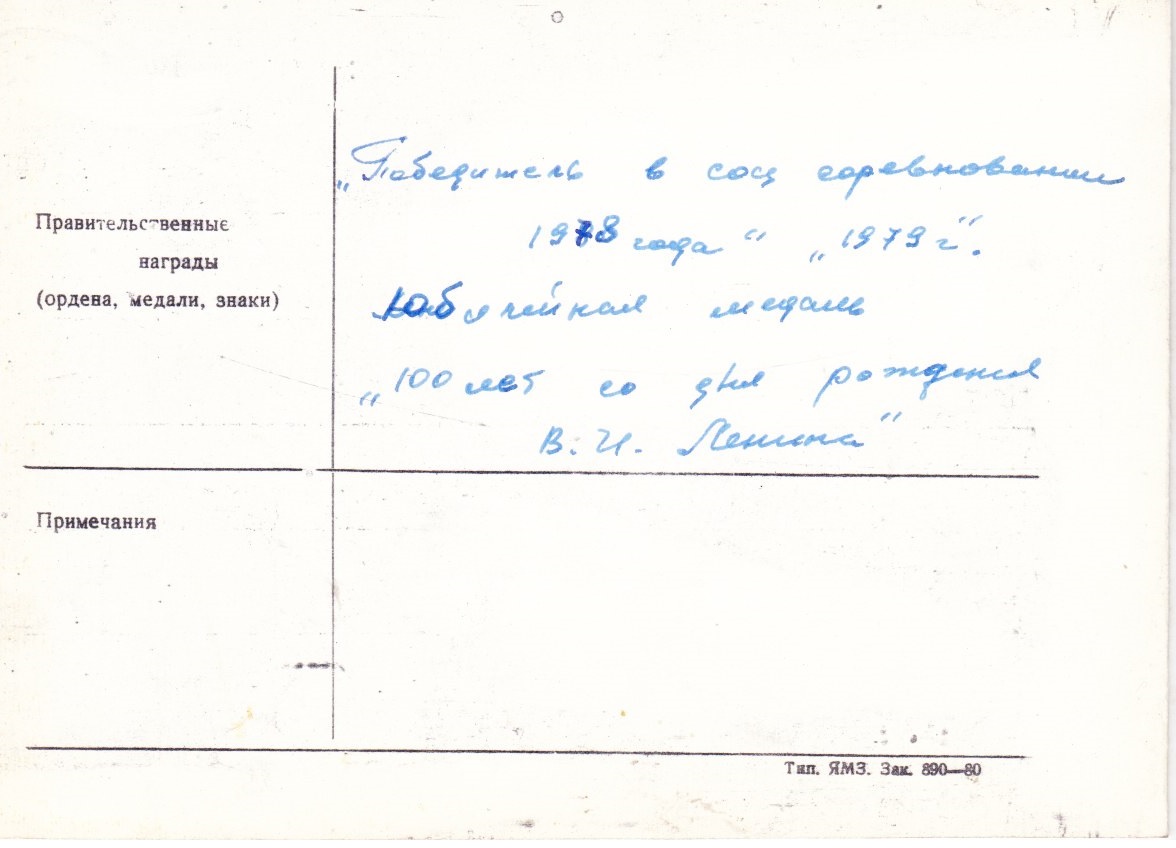 „Победитель в соц соревновании
Правительственные
1978 года“ „1979 г“.
награды
(ордена, медали, знаки)
Юбилейная медаль
„100 лет со дня рождения
В. И. Ленина“
Примечания
Тип. ЯМЗ. Зак. 890—80